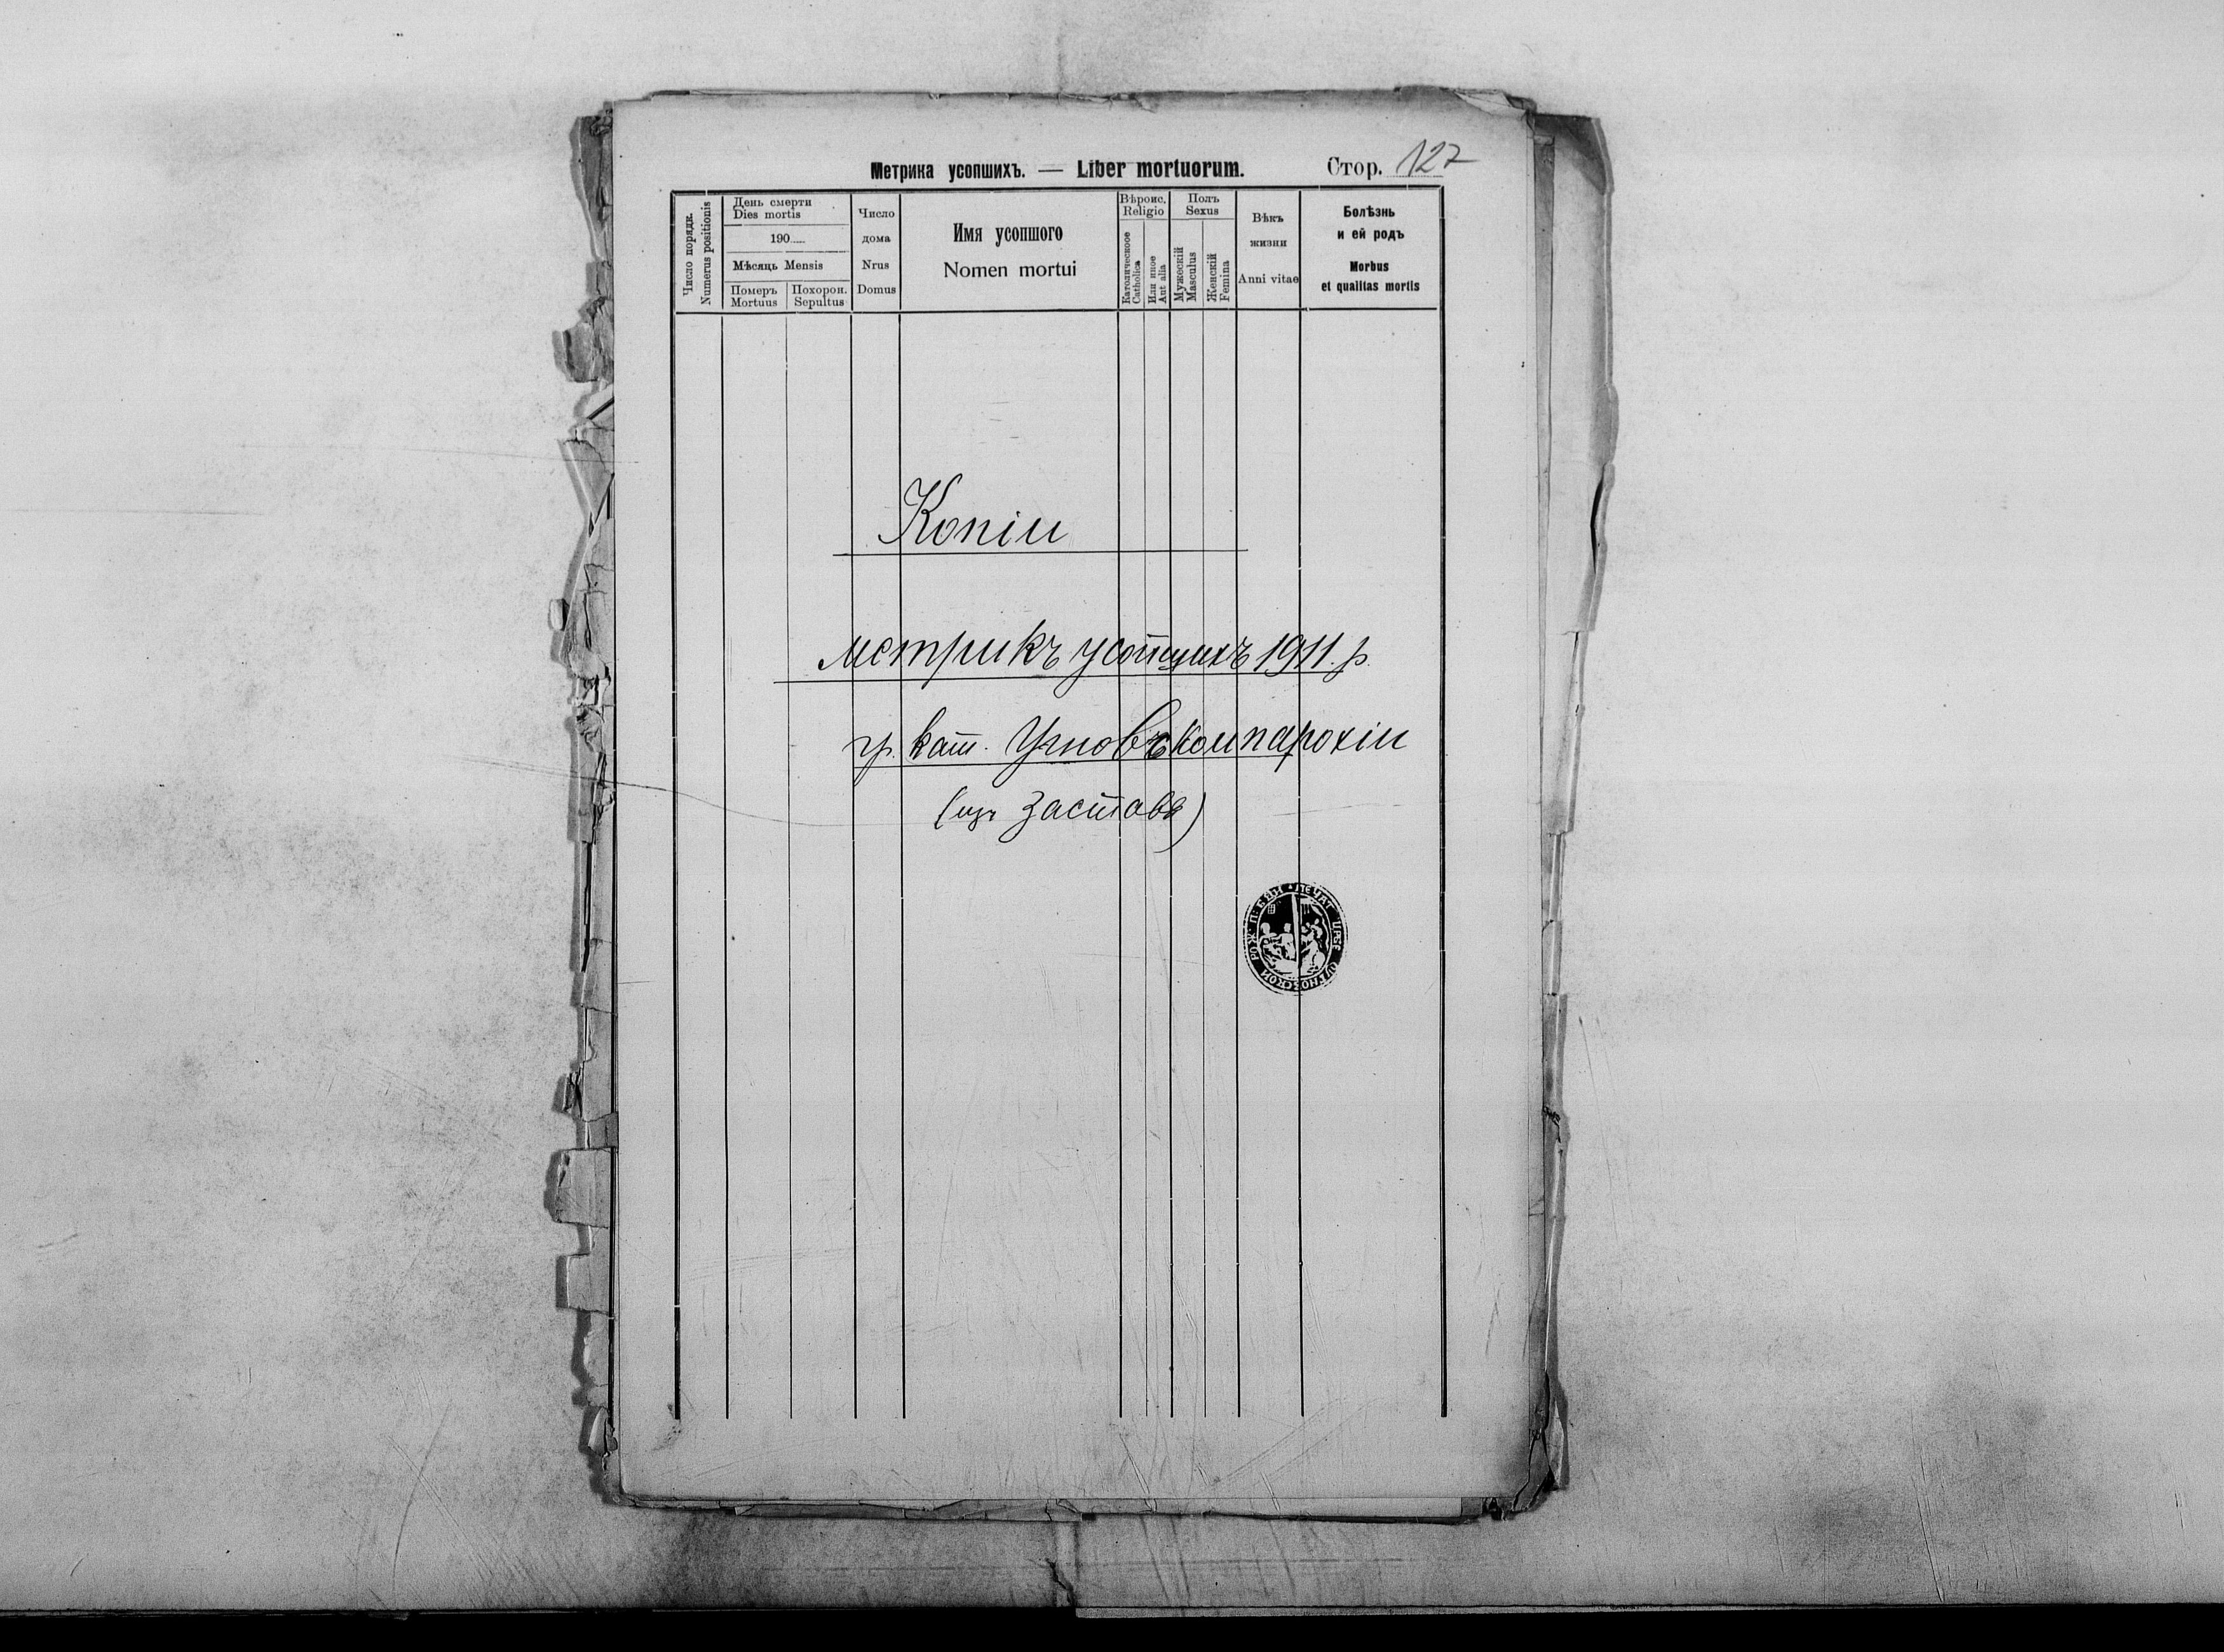 Метрика усопшихъ. — Liber mortuorum. Стор. 127
Число порядк.
Numerus positionis
День смерти
Dies mortis
190.....
Мѣсяць Mensis
Померъ
Mortuus
Похорон.
Sepultus
Число
дома
Nrus
Domus
Имя усопшого
Nomen mortui
Вѣроис.
Religio
Католическоое
Catholica
Или иное
Aut alia
Полъ
Sexus
Мужескій
Masculus
Женскій
Femina
Вѣкъ
жизни
Anni vitae
Болѣзнь
и ей родъ
Morbus
et qualitas mortis
Копіи
метрикъ усопшихъ 1911. р.
гр. кат. Угновскои парохіи
(изъ Застава)